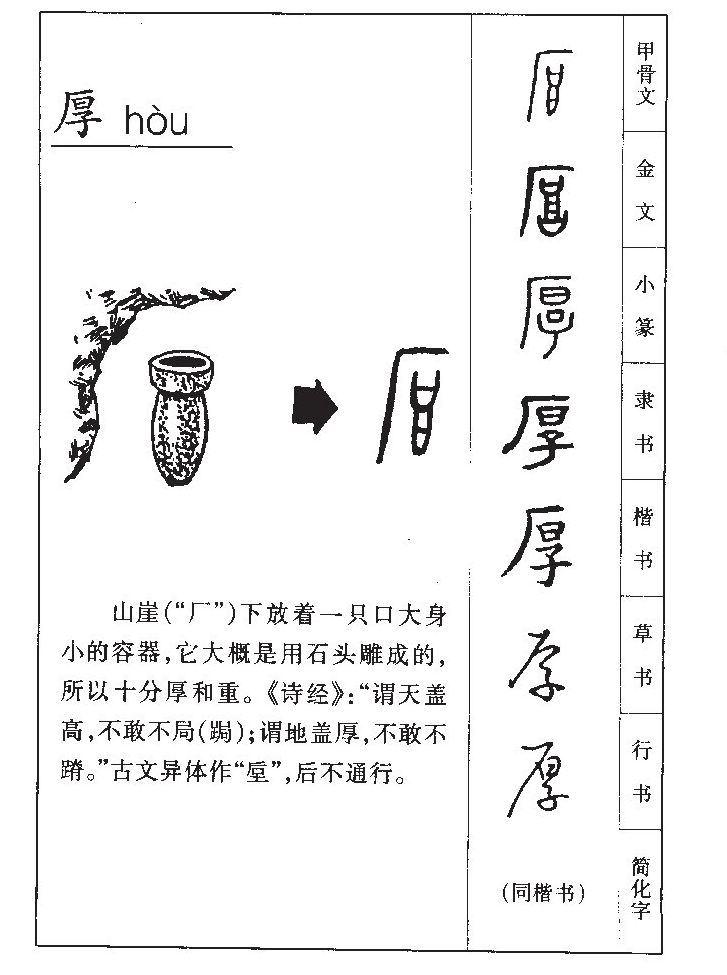 厚 hòu
山崖(“厂”)下放着一只口大身
小的容器,它大概是用石头雕成的,
所以十分厚和重。《诗经》:“谓天盖
高,不敢不局(跼);谓地盖厚,不敢不
蹐。”古文异体作“垕”,后不通行。
甲骨文
金文
小篆
厚
隶书
厚
楷书
厚
草书
厚
行书
(同楷书)
简化字